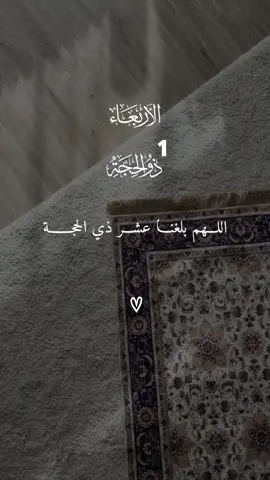 الأربعاء
1
ذو الحجة
اللهم بلغنا عشر ذي الحجة